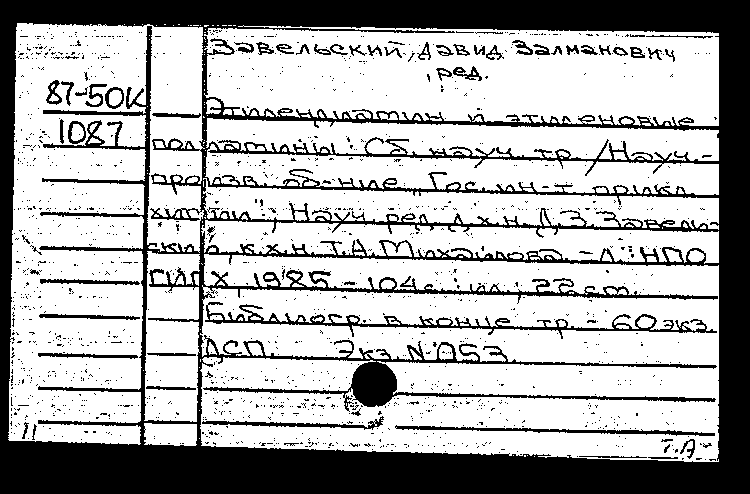 Завельский, Давид Залманович
, ред.
87-50К
1087
Этилендиамин и этиленовые
полиамины : Сб. науч. тр. / Науч.-
произв. об-ние "Гос. ин-т прикл.
химии" ; Науч. ред. д.х.н. Д.З. Завель-
ский, к.х.н. Т.А. Михайлова. - Л. : НПО
ГИПХ, 1985. - 104 с. : ил. ; 22 см.
Библиогр. в конце тр. - 60 экз.
ДСП. Экз. N 053.
11
Т.А